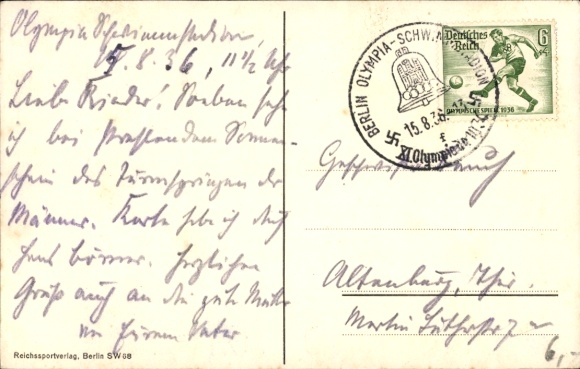 Olympia Schwimmstadion,
15.8.36, 11 1/2 Uhr
Liebe Kinder! Soeben sehe
ich bei strahlendem Sonnen-
schein das Turmspringen der
Männer. Karte habe ich durch
Hans Körner. Herzlichen
Gruß auch an die gute Mutter
von Eurem Vater.
Reichssportverlag, Berlin SW 68
BERLIN OLYMPIA-SCHW. STADION
15.8.36
f
XI. Olympiade 1936
Deutsches Reich 6
OLYMPISCHE SPIELE 1936
Geschwister
Altenburg, Thür.
Martin Lutherstr. 7
6,-